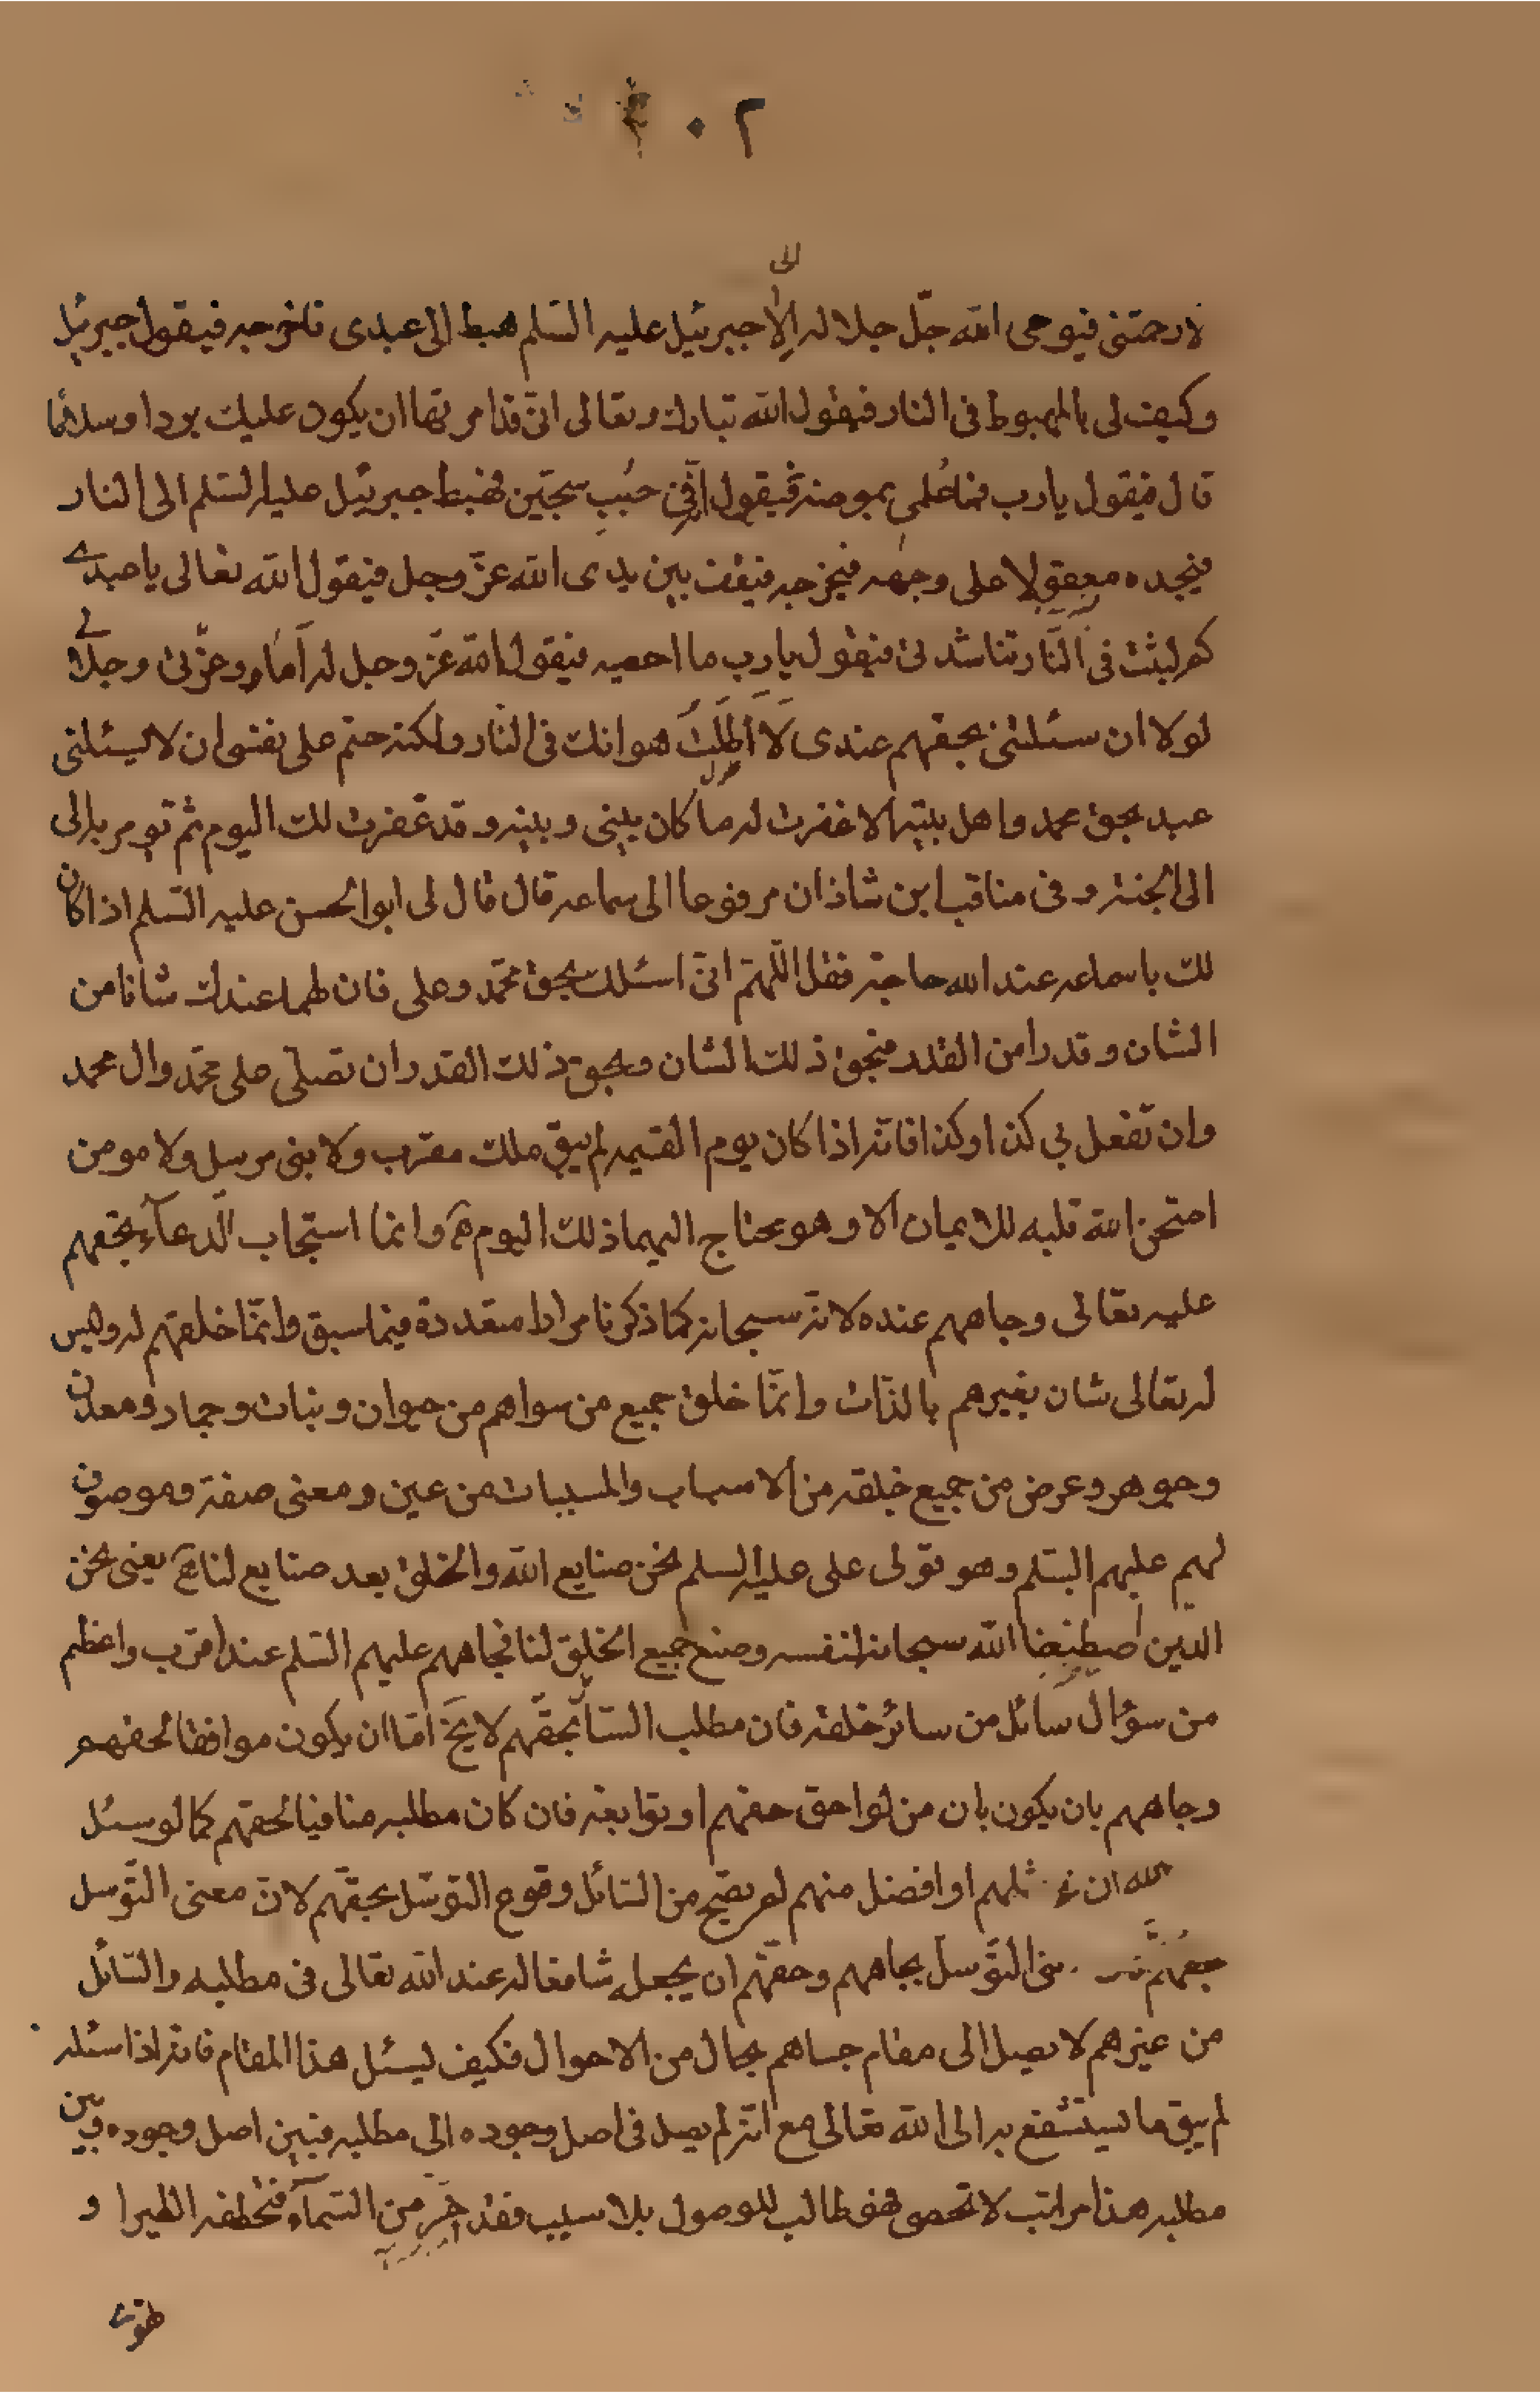 ٢٠
الى
لا رحمتنى فيوحى الله جلّ جلاله الا جبرئيل عليه السّلم اهبط الى عبدى فاخرجه فيقول جبرئيل
وكيف لى بالهبوط فى النار فيقول الله تبارك وتعالى انّى قد امرتها ان يكون عليك بردا وسلاما
قال فيقول يارب فما علمى بموضعه فيقول انّه فى جُبّ سجّين فهبط جبرئيل عليه السلم الى النار
فيجده معقولا على وجهه فيخرجه فيقف بين يدى الله عزّ وجل فيقول الله تعالى يا عبدى
كم لبثت فى النّار تناشدنى فيقول يارب ما احصيه فيقول الله عزّ وجل له اما وعزّتى وجلالى
لولا ان سئلتنى بحقهم عندى لا اطلت هوانك فى النار ولكنه حتم على نفسى ان لا يسئلنى
عبد بحق محمد واهل بيته الا غفرت له ما كان بينى وبينه وقد غفرت لك اليوم ثم يؤمر به الى
الى الجنة وفى مناقب ابن شاذان مرفوعا الى سماعه قال قال لى ابو الحسن عليه السّلم اذا كان
لك ياسماعه عند الله حاجة فقل اللّهمّ انّى اسئلك بحق محمّد وعلى فان لهما عندك شانا من
الشان وقدرا من القدر فبحق ذلك الشان وبحق ذلك القدر ان تصلّى على محمّد وال محمد
وان تفعل بى كذا وكذا فانّه اذا كان يوم القيمه لم يبق ملك مقرّب ولا نبى مرسل ولا مومن
امتحن الله قلبه للايمان الا وهو محتاج اليهما ذلك اليوم وانما استجاب الدّعآء بحقهم
عليه تعالى وجاههم عنده لانه سبحانه كما ذكرنا مرارا متعددة فيما سبق وانمّا خلقهم له وليس
له تعالى شان بغيرهم بالذّات وانمّا خلق جميع من سواهم من حيوان ونبات وجماد ومعدن
وجوهر وعرض من جميع خلقه من الاسباب والمسببات من عين ومعنى صفة وموصوف
لهم عليهم السّلم وهو قولى على عليه السلم نحن صنايع الله والخلق بعد صنايع لنا يعنى نحن
الّذين اصطنعنا الله سبحانه لنفسه وصنع جميع الخلق لنا فجاههم عليهم السّلم عنده اقرب واعظم
من سؤال سائل من سائر خلقه فان مطلب السّائل بحقّهم لا يخ امّا ان يكون موافقا لحقهم
وجاههم بان يكون بان من لواحق حقهم او توابعه فان كان مطلبه منافيا لحقهم كما لو سئل
الله ان ثلهم او افضل منهم لم يصح من السّائل وقوع التوسّل بحقّهم لانّ معنى التّوسل
بحقهم معنى التّوسل بجاههم وحقّهم ان يجعله شافعا له عند الله تعالى فى مطلبه والسّائل
من غيرهم لا يصل الى مقام جاههم بحال من الاحوال فكيف يسئل هذا المقام فانه اذا سئله
لم يبق ما يستشفع به الى الله تعالى مع انّه لم يصل فى اصل وجوده الى مطلبه فبين اصل وجوده وبين
مطلبه هذا مراتب لا تحصى فهو طالب للوصول بلا سبب فقد خرّ من السّمآء فتخطفه الطير او
تهوى